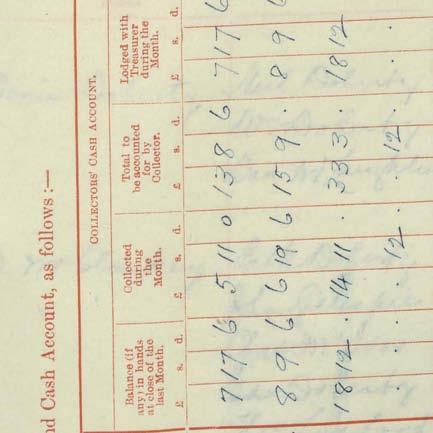 nd Cash Account, as follows :—
COLLECTORS' CASH ACCOUNT.
Balance (if any) in hands at close of the last Month.
Collected during the Month.
Total to be accounted for by Collector.
Lodged with Treasurer during the Month.
£ s. d. £ s. d. £ s. d. £ s. d.
7 17 6 5 11 0 13 8 6 7 17 6
8 9 6 6 19 6 15 9 . 8 9 6
18 12 . 14 11 . 33 3 . 18 12
. . . . 12 . . 12 . . .